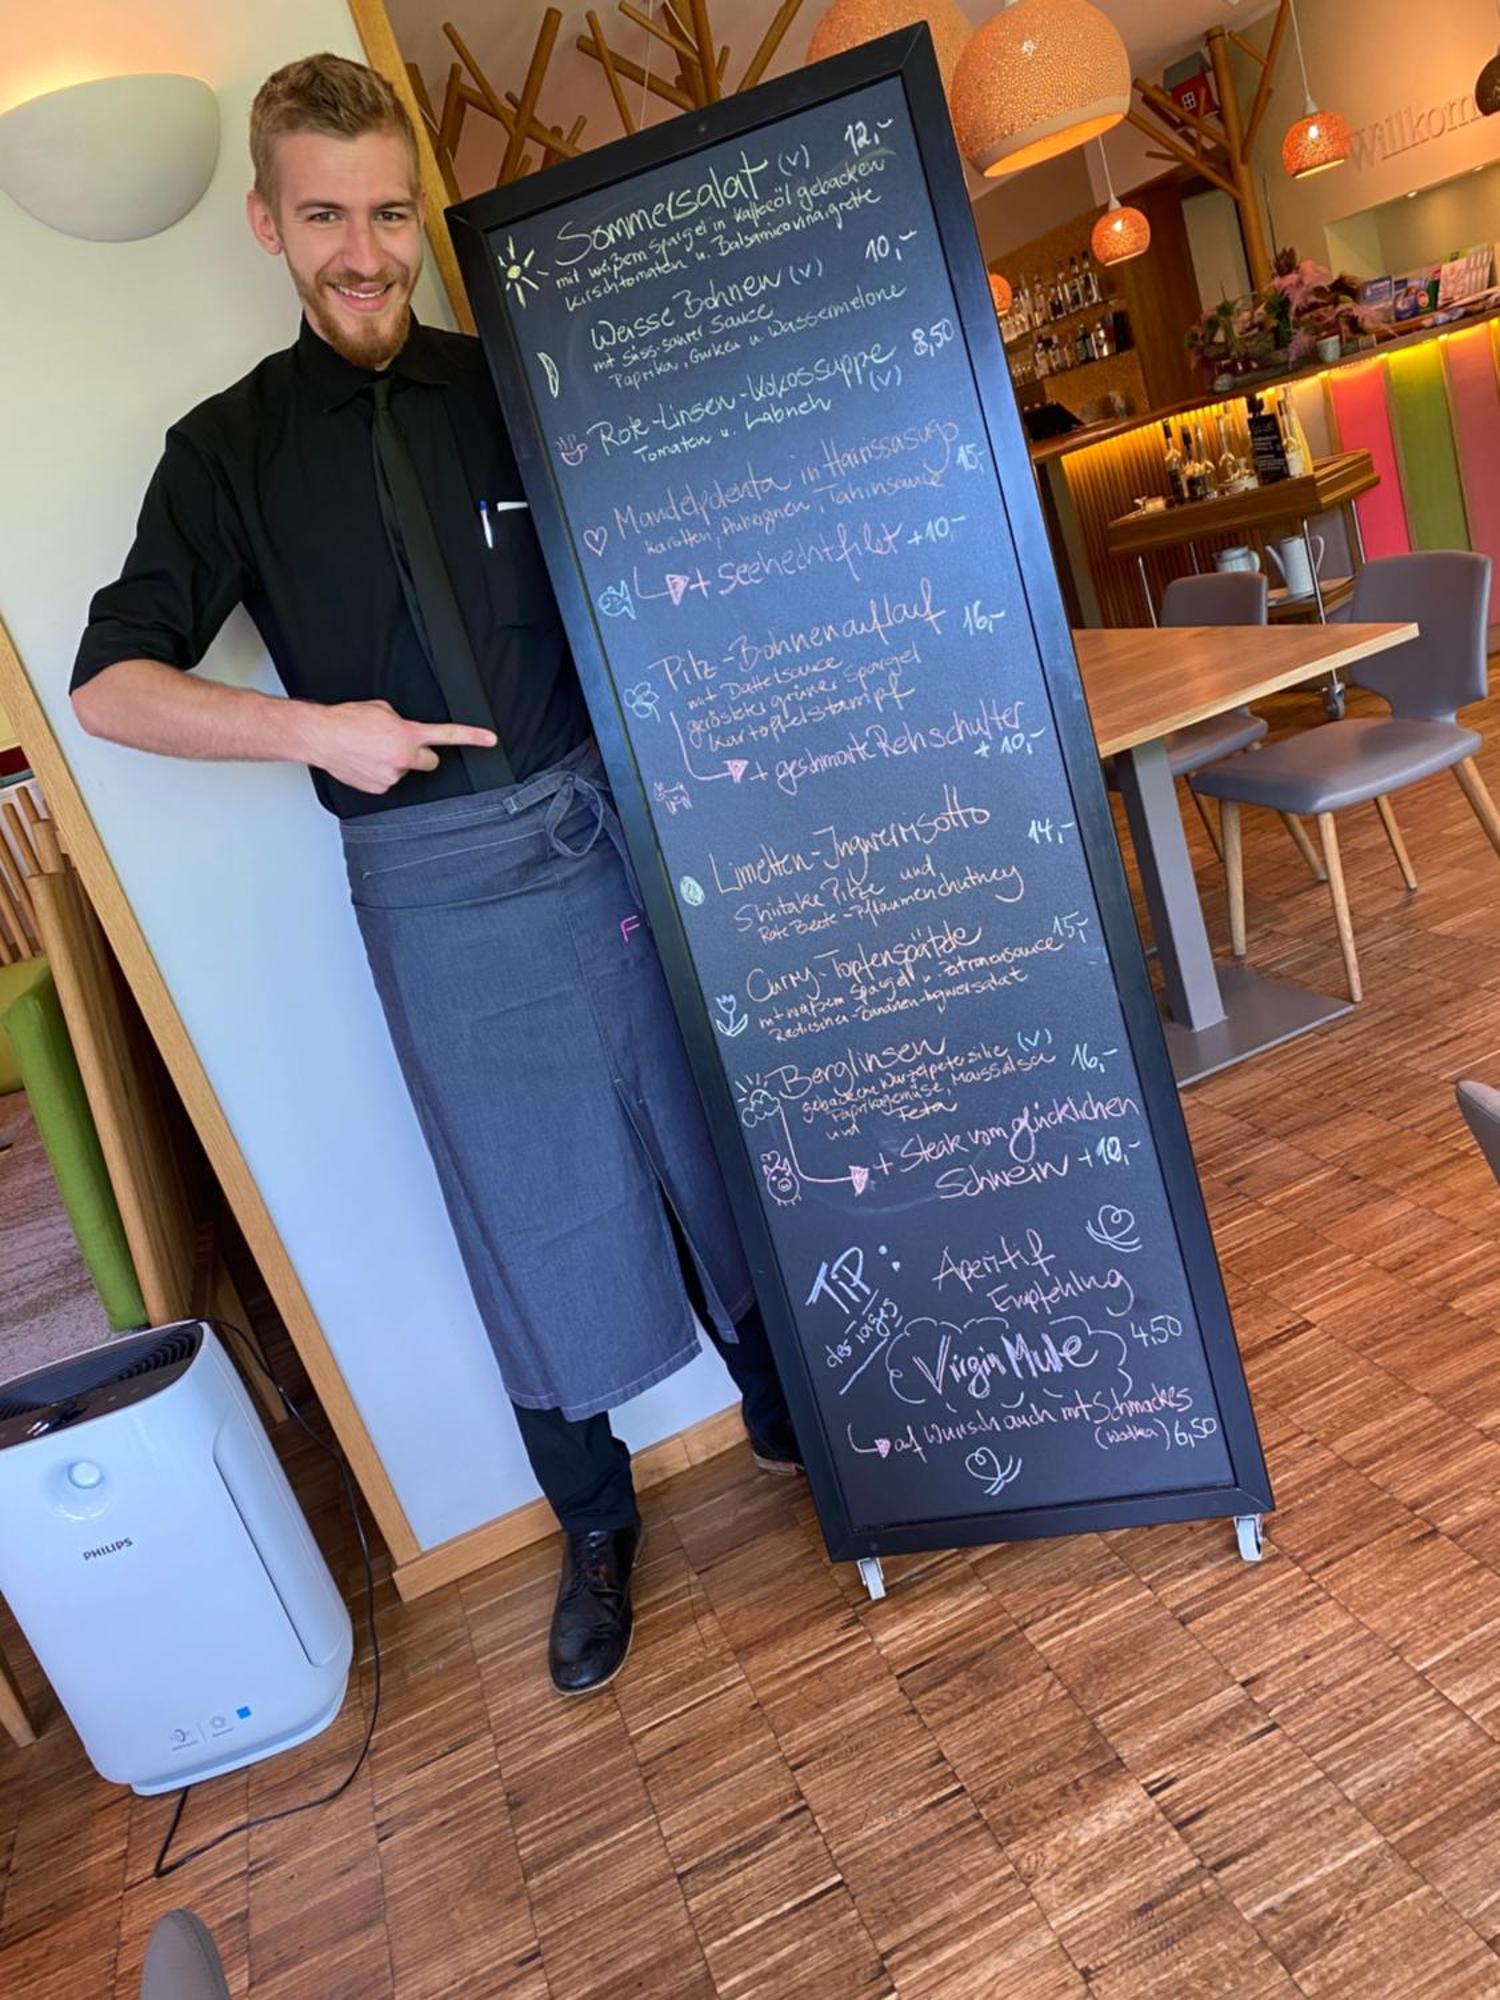 Willkom
Sommersalat (v) 12,-
mit weißem Spargel in Kaffeeöl gebacken
Kirschtomaten u. Balsamicovinaigrette
Weisse Bohnen (v) 10,-
mit süss-saurer Sauce
Paprika, Gurken u. Wassermelone
Rote-Linsen-Kokossuppe 8,50
Tomaten u. Labneh (v)
Mandelpolenta in Harissasugo 15,-
Karotten, Auberginen, Tahinsauce
+ Seehechtfilet +10,-
Pilz-Bohnenauflauf 16,-
mit Dattelsauce
gerösteter grüner Spargel
Kartoffelstampf
+ geschmorte Rehschulter
+ 10,-
Limetten-Ingwerrisotto 14,-
Shiitake Pilze und
Rote Beete-Pflaumenchutney
Curry-Topfenspätzle 15,-
mit weißem Spargel u. Zitronensauce
Radieschen-Bananen-Ingwersalat
Berglinsen (v) 16,-
gebackene Wurzelpetersilie
Paprikagemüse, Maissalsa
und Feta
+ Steak vom glücklichen
Schwein +10,-
TIP:
des Tages
Aperitif
Empfehlung
Virgin Mule 4,50
auf Wunsch auch mit Schmackes
(Wodka) 6,50
F
PHILIPS